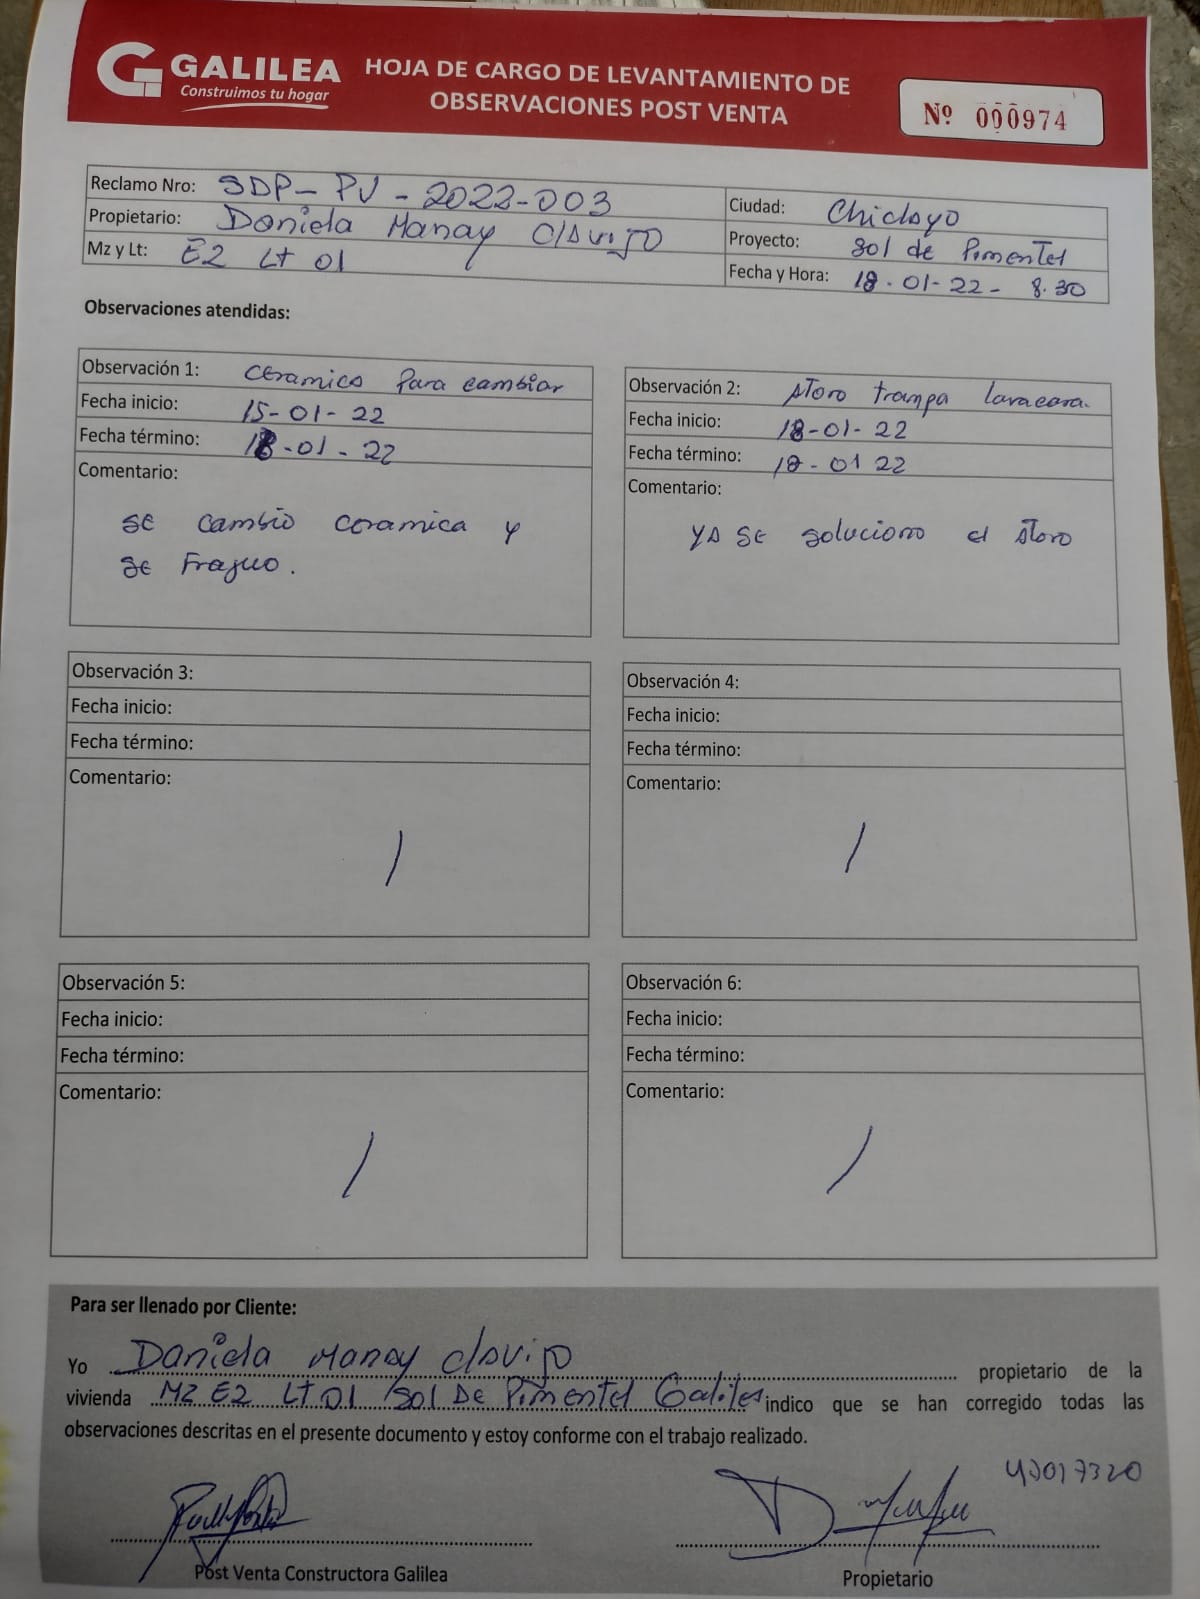 GALILEA
Construimos tu hogar
HOJA DE CARGO DE LEVANTAMIENTO DE
OBSERVACIONES POST VENTA
Nº 000974
Reclamo Nro: SDP-PV-2022-003
Propietario: Daniela Manay Clavijo
Mz y Lt: E2 Lt 01
Ciudad: Chiclayo
Proyecto: Sol de Pimentel
Fecha y Hora: 18-01-22- 8.30
Observaciones atendidas:
Observación 1: Ceramico Para cambiar
Fecha inicio: 15-01-22
Fecha término: 18-01-22
Comentario:
se cambio ceramica y
se Fraguo.
Observación 2: Atoro trampa lavacara.
Fecha inicio: 18-01-22
Fecha término: 18-01 22
Comentario:
Ya se soluciono el Atoro
Observación 3:
Fecha inicio:
Fecha término:
Comentario:
/
Observación 4:
Fecha inicio:
Fecha término:
Comentario:
/
Observación 5:
Fecha inicio:
Fecha término:
Comentario:
/
Observación 6:
Fecha inicio:
Fecha término:
Comentario:
/
Para ser llenado por Cliente:
Yo Daniela Manay Clavijo propietario de la
vivienda MZ E2 LT 01 / Sol De Pimentel Galilea indico que se han corregido todas las
observaciones descritas en el presente documento y estoy conforme con el trabajo realizado.
Post Venta Constructora Galilea
Propietario